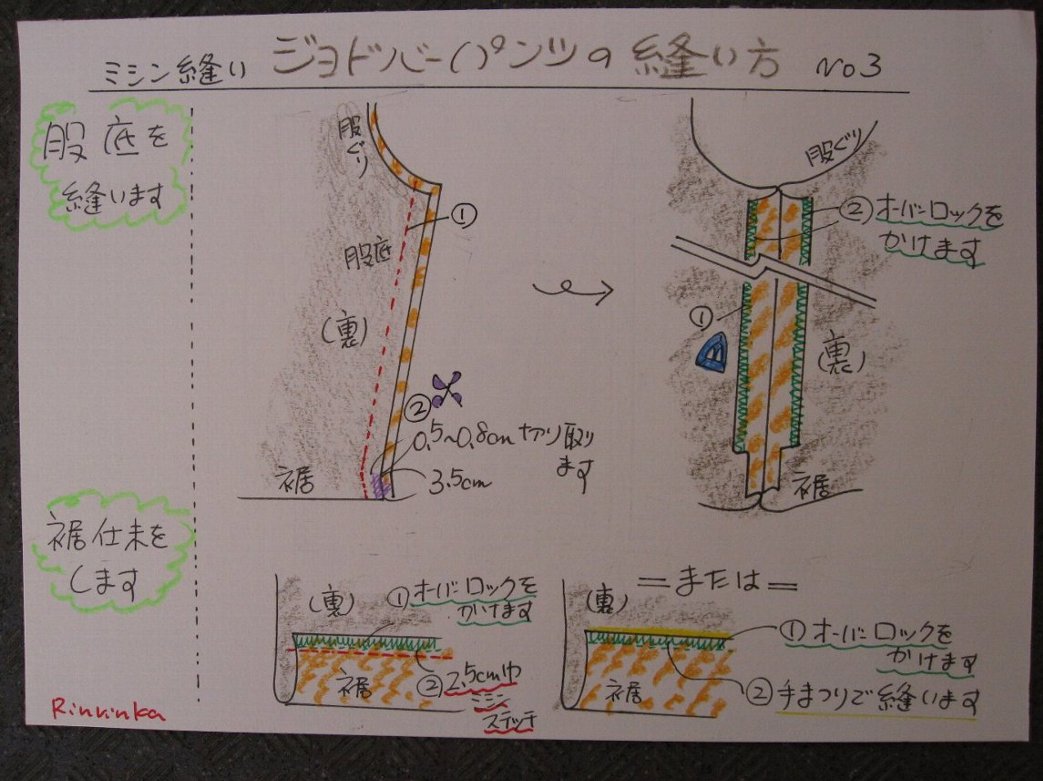 ミシン縫い ジョドパーパンツの縫い方 No3
股底を
縫います
股ぐり
①
股底
(裏)
②
0.5~0.8cm切り取り
ます
3.5cm
裾
股ぐり
②オーバーロックを
かけます
①
(裏)
裾
裾仕末を
します
(裏)
①オーバーロックを
かけます
裾
②2.5cm巾
ミシン
ステッチ
=または=
(裏)
①オーバーロックを
かけます
裾
②手まつりで縫います
Rinrinka